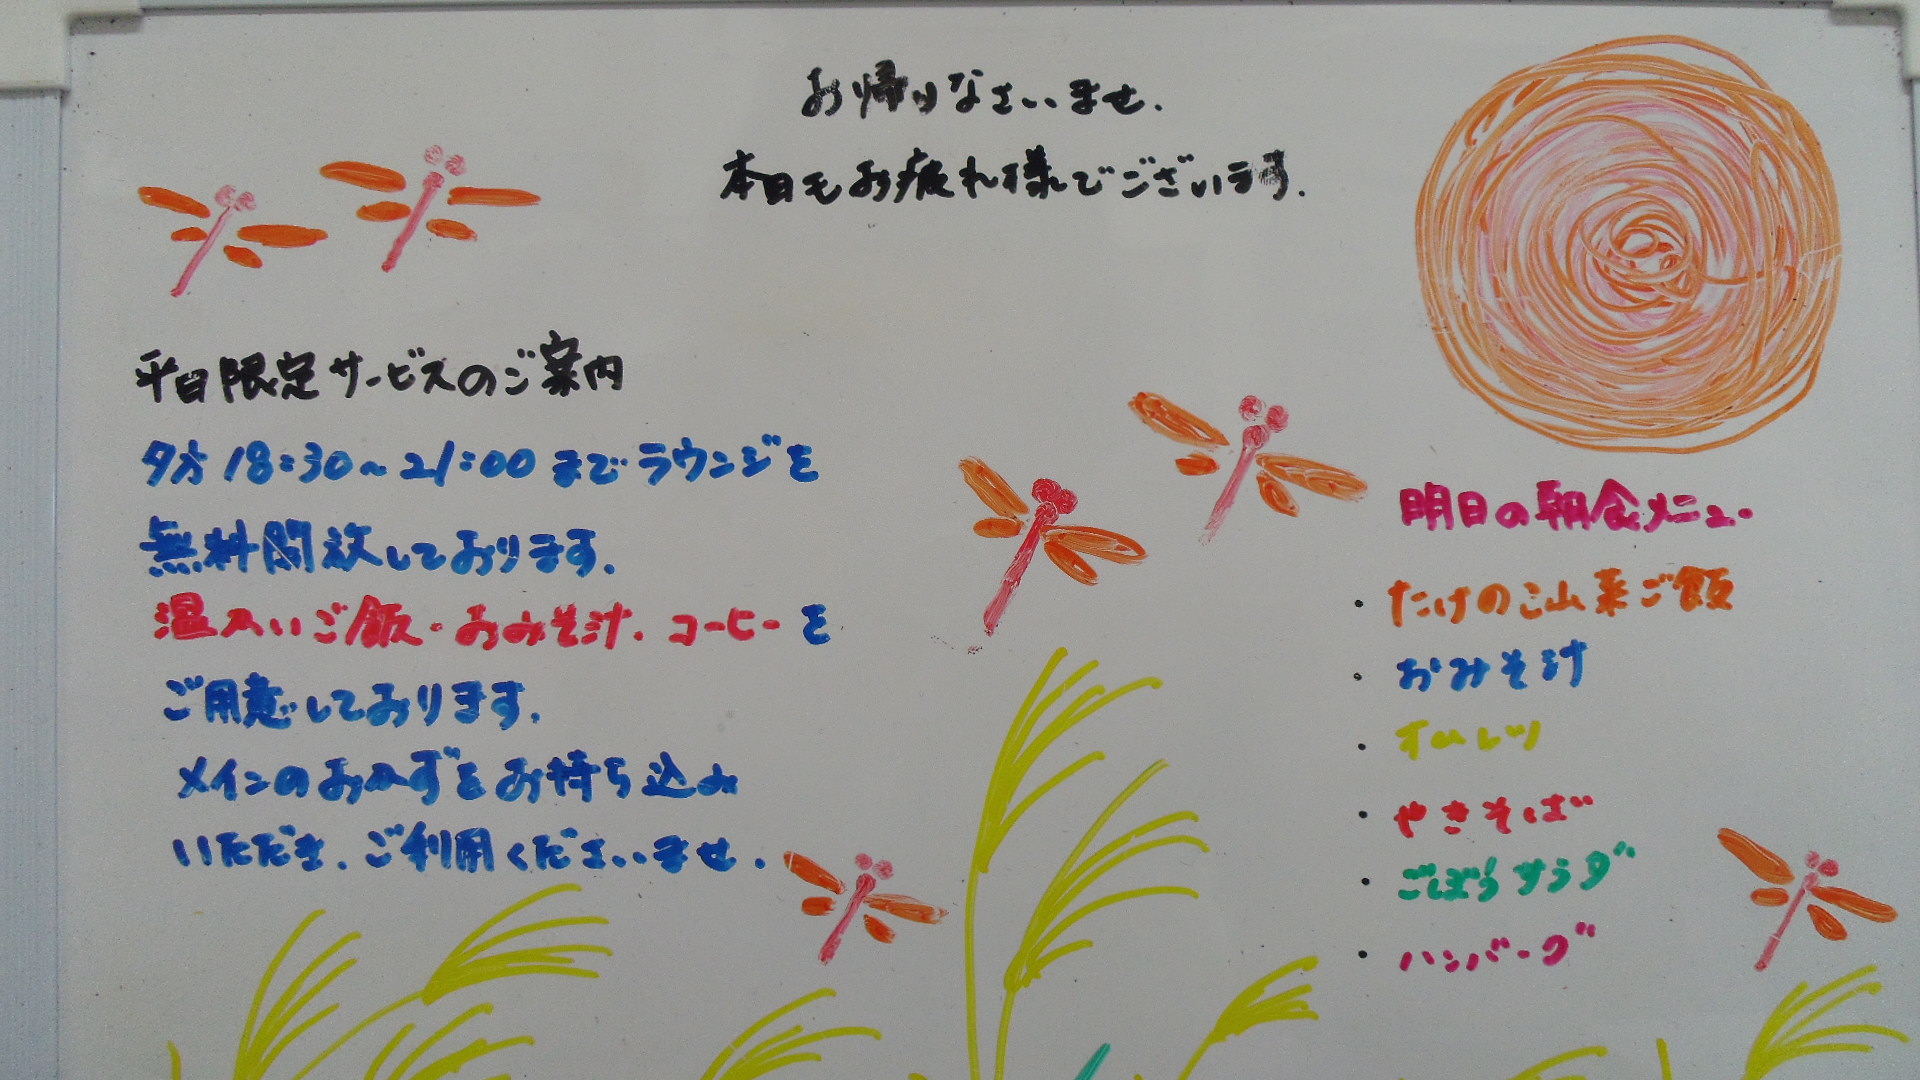 お帰りなさいませ.
本日もお疲れ様でございます.
平日限定サービスのご案内
夕方18:30〜21:00までラウンジを
無料開放しております.
温かいご飯・おみそ汁.コーヒーを
ご用意しております.
メインのおかずをお持ち込み
いただき.ご利用くださいませ.
明日の朝食メニュー
・たけのこ山菜ご飯
・おみそ汁
・オムレツ
・やきそば
・ごぼうサラダ
・ハンバーグ